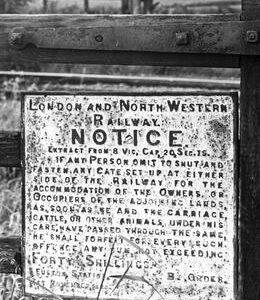 LONDON AND NORTH WESTERN
RAILWAY.
NOTICE.
EXTRACT FROM 8 VIC, CAP. 20, SEC. 75.
IF ANY PERSON OMIT TO SHUT AND
FASTEN ANY GATE SET UP AT EITHER
SIDE OF THE RAILWAY FOR THE
ACCOMMODATION OF THE OWNERS, OR
OCCUPIERS OF THE ADJOINING LANDS
AS SOON AS HE AND THE CARRIAGE,
CATTLE, OR OTHER ANIMALS, UNDER HIS
CARE, HAVE PASSED THROUGH THE SAME
HE SHALL FORFEIT FOR EVERY SUCH
OFFENCE, ANY SUM NOT EXCEEDING
FORTY SHILLINGS.
EUSTON STATION
BY ORDER.